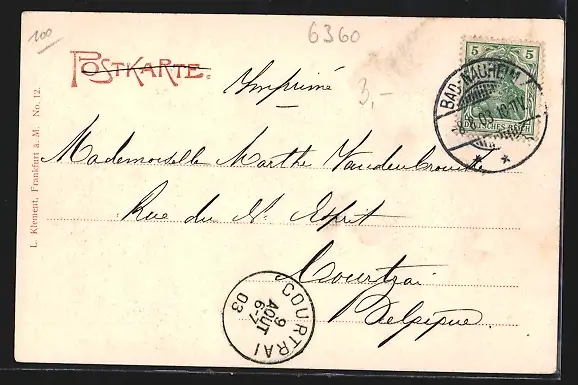 100
6360
POSTKARTE.
Imprimé
3,-
5 5
BAD-NAUHEIM
03
Mademoiselle Marthe Vandenbroucke
Rue du St Esprit
Courtrai
Belgique.
COURTRAI
9
AOÛT
6-7
03
L. Klement, Frankfurt a. M. No. 12.